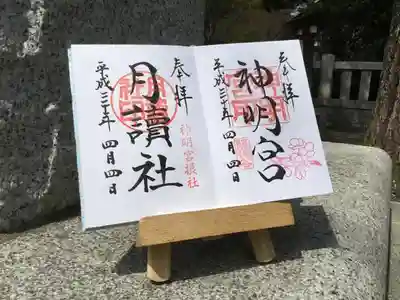 奉拝
神明宮
平成三十年四月四日
奉拝
月讀社
神明宮摂社
平成三十年四月四日